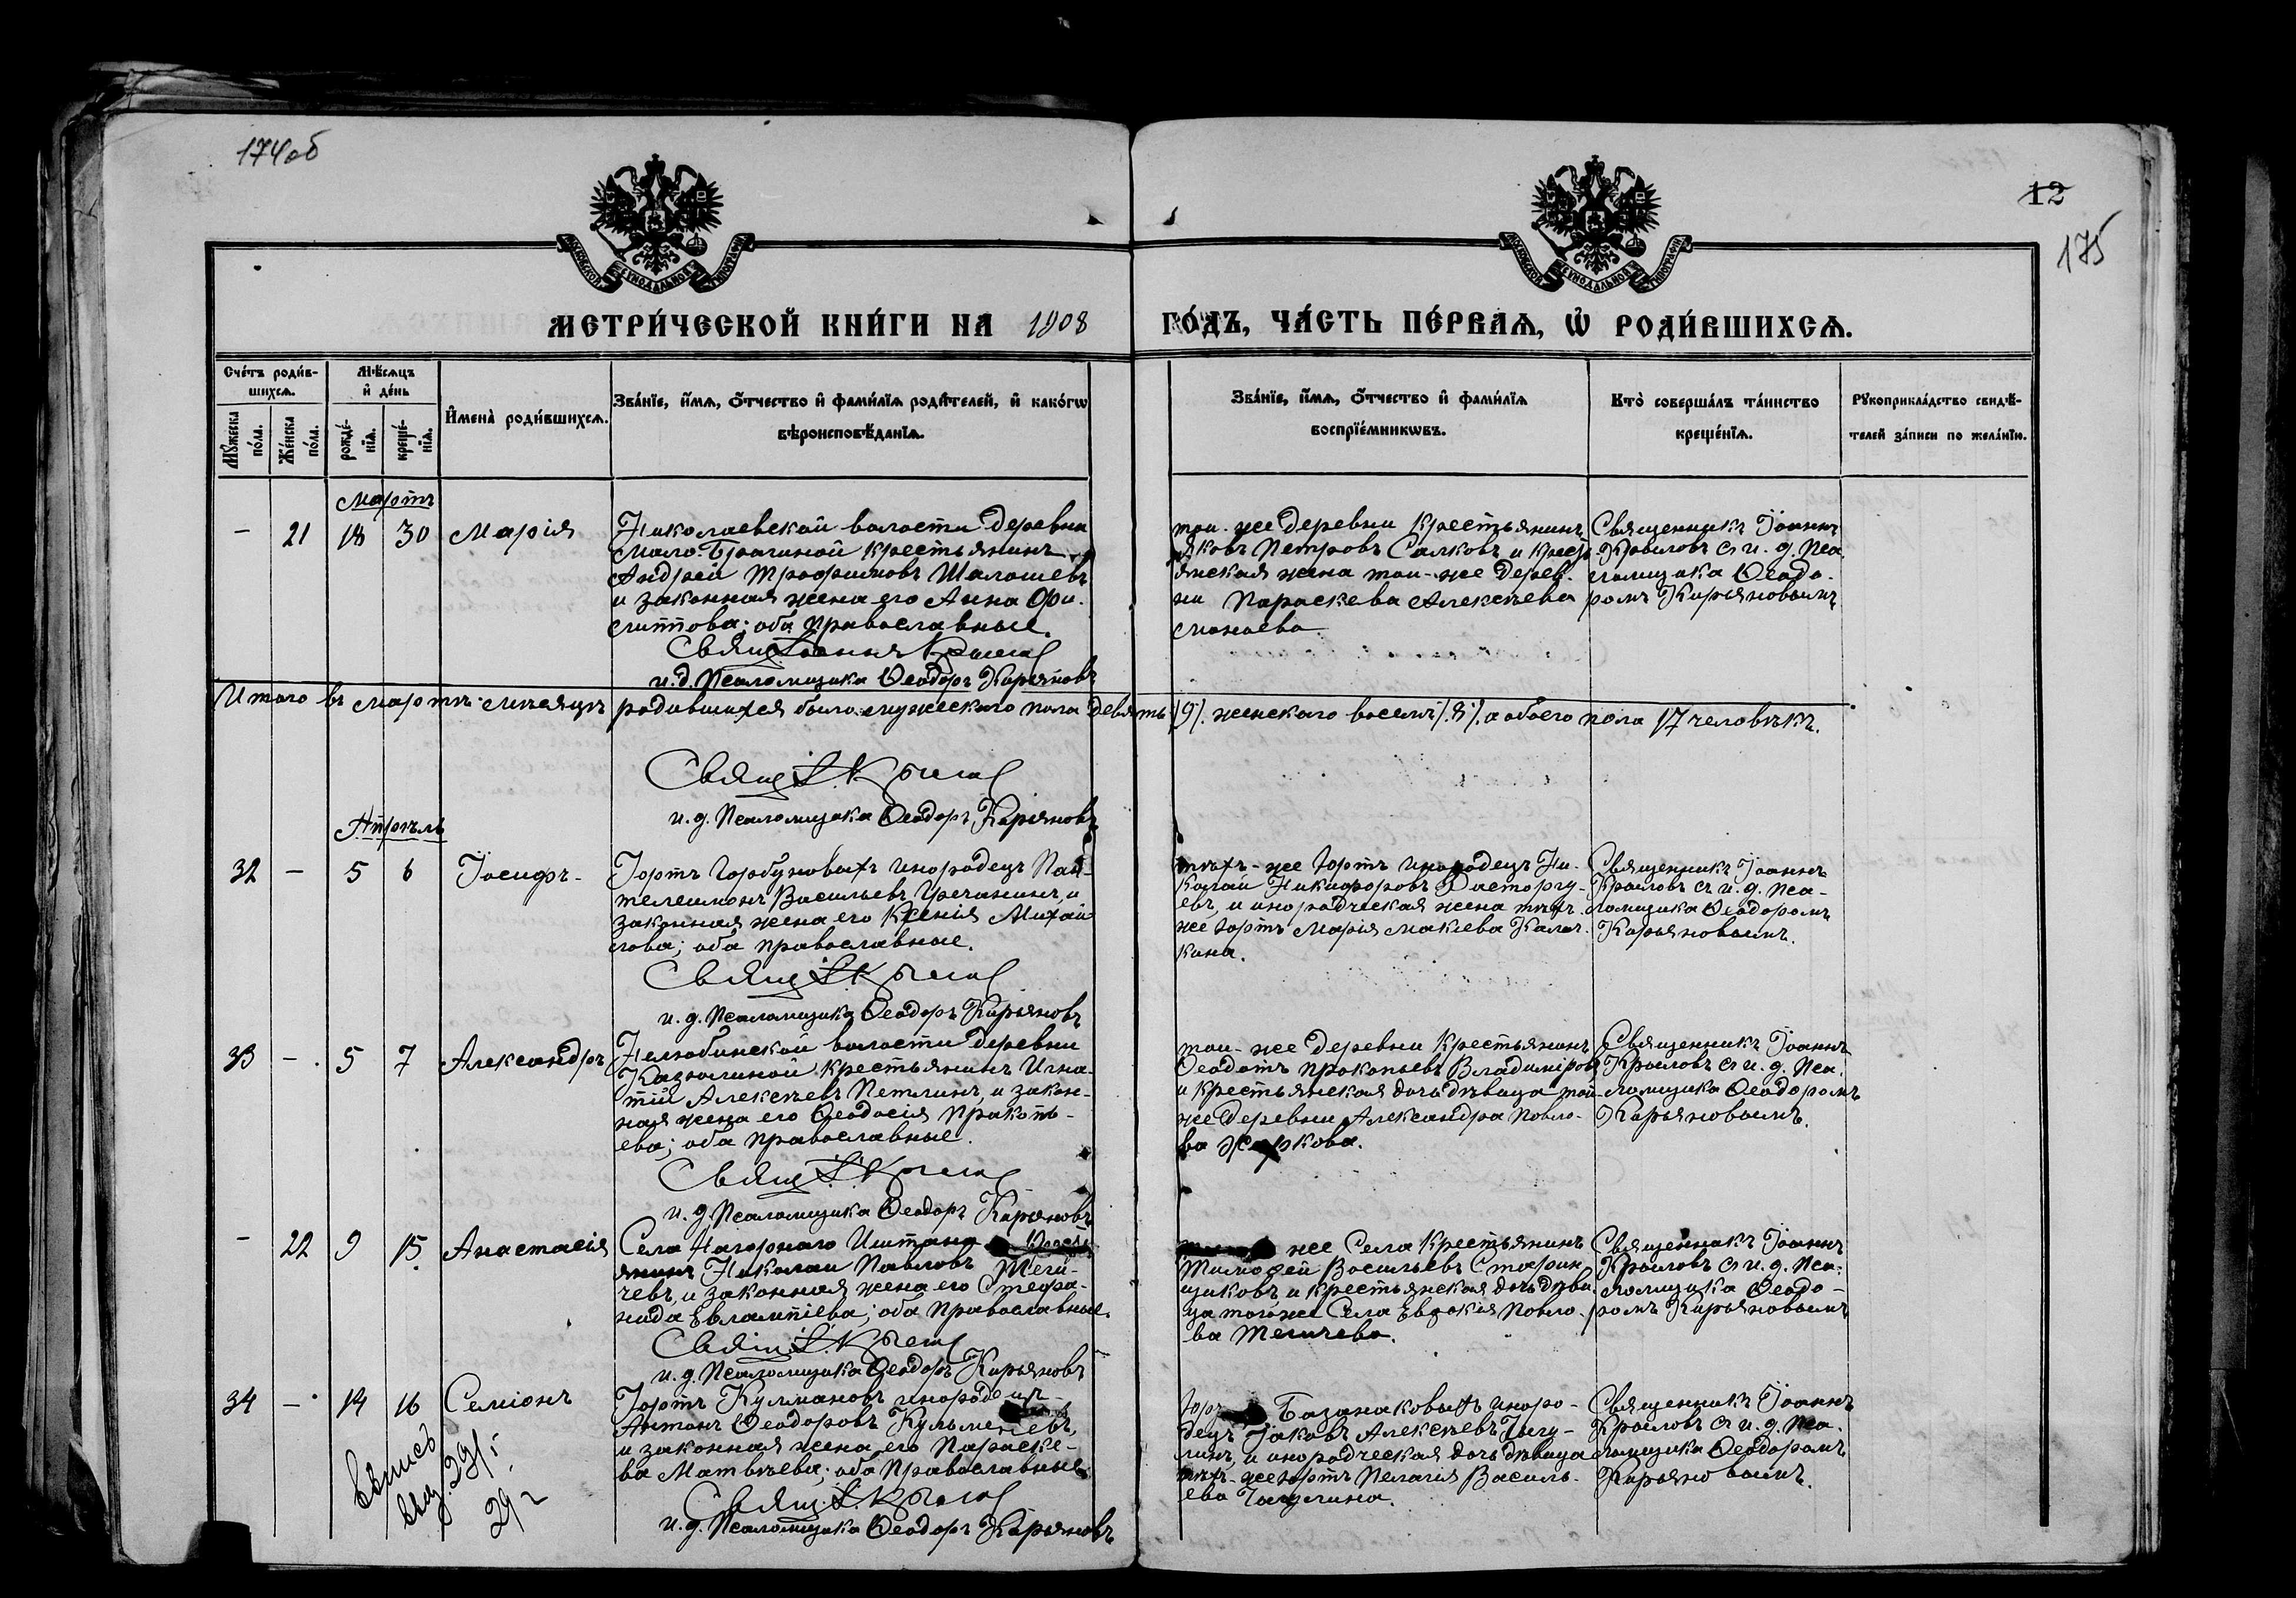 174об
12
175
МОСКОВСКОЙ СѴНОДАЛЬНОЙ ТИПОГРАФІИ
МОСКОВСКОЙ СѴНОДАЛЬНОЙ ТИПОГРАФІИ
МЕТРИ́ЧЕСКОЙ КНИ́ГИ НА 1908
ГО́ДЪ, ЧА́СТЬ ПЕ́РВАѦ, Ѡ҆ РОДИ́ВШИХСѦ.
Сче́тъ роди́в-
шихсѧ.
Мꙋ́жеска по́ла.
Же́нска по́ла.
Мѣ́сѧцъ
и҆ де́нь
рожде́-
нїѧ.
креще́-
нїѧ.
И҆мена̀ роди́вшихсѧ.
Зва́нїе, и҆́мѧ, ѻ҆́тчество и҆ фами́лїѧ роди́телей, и҆ како́гѡ
вѣроисповѣ́данїѧ.
Зва́нїе, и҆́мѧ, ѻ҆́тчество и҆ фами́лїѧ
воспрїе́мникѡвъ.
Кто̀ соверша́лъ та́инство
креще́нїѧ.
Рꙋкоприкла́дство свидѣ́-
телей за́писи по жела́нїю.
Мартъ
- 21 18 30 Марія
Николаевской волости деревни
Мало-Брагиной крестьянинъ
Андрей Трофимовъ Шалошевъ
и законная жена его Анна Фи-
липпова; оба православные.
Свящ. Іоаннъ Крыловъ
и. д. Псаломщика Ѳеодоръ Кирьяновъ
той-же деревни крестьянинъ
Яковъ Петровъ Салковъ и крест-
янская жена той-же дерев-
ни Параскева Алексѣева
Мамаева.
Священникъ Іоаннъ
Крыловъ съ и. д. Пса-
ломщика Ѳеодо-
ромъ Кирьяновымъ
Итого въ мартѣ мѣсяцѣ родившихся было мужескаго пола девять /9/. женскаго восемь /8/, а обоего пола 17 человѣкъ.
Свящ. І. Крыловъ
и. д. Псаломщика Ѳеодоръ Кирьяновъ
Апрѣль
32 - 5 6 Іосифъ-
Юртъ Горбуновыхъ инородецъ Пан-
телеимонъ Васильевъ Гречанинъ, и
законная жена его Ксенія Михай
лова; оба православные.
Свящ. І. Крыловъ
и. д. Псаломщика Ѳеодоръ Кирьяновъ
тѣхъ-же юртъ инородецъ Ни-
колай Никифоровъ Расторгу-
евъ, и инородческая жена тѣхъ-
же юртъ Марія Макіева Калач-
кина.
Священникъ Іоаннъ
Крыловъ съ и. д. Пса-
ломщика Ѳеодоромъ
Кирьяновымъ.
33 - 5 7 Александръ
Нелюбинской волости деревни
Казюлиной крестьянинъ Игна-
тій Алексѣевъ Петлинъ, и закон-
ная жена его Ѳеодосія Прокопь-
ева; оба православные.
Свящ. І. Крыловъ
и. д. Псаломщика Ѳеодоръ Кирьяновъ
той-же деревни крестьянинъ
Ѳеодотъ Прокопьевъ Владиміровъ
и крестьянская дочь дѣвица той
же деревни Александра Павло-
ва
Священникъ Іоаннъ
Крыловъ съ и. д. Пса-
ломщика Ѳеодоромъ
Кирьяновымъ.
- 22 9 15 Анастасія
Села Нагорнаго Иштана
янинъ Николай Павловъ Теги-
чевъ, и законная жена его Стефа-
нида Евлампіева; оба православные.
Свящ. І. Крыловъ
и. д. Псаломщика Ѳеодоръ Кирьяновъ
же Села крестьянинъ
Тимофей Васильевъ Старин-
щиковъ и крестьянская дочь дѣви-
ца того же Села Евдокія Павло-
ва Тегичева.
Священникъ Іоаннъ
Крыловъ съ и. д. Пса-
ломщика Ѳеодо-
ромъ Кирьяновымъ
34 - 14 16 Семіонъ
Юртъ Кулмановъ инородецъ-
Антонъ Ѳеодоровъ Кульменевъ,
и законная жена его Параске-
ва Матвѣева; оба православные
Свящ. І. Крыловъ
и. д. Псаломщика Ѳеодоръ Кирьяновъ
Юртъ Базанаковыхъ иноро-
децъ Іаковъ Алексѣевъ
линъ, и инородческая дочь дѣвица
тѣхъ-же юртъ Пелагія Василь-
ева
Священникъ Іоаннъ
Крыловъ съ и. д. Пса-
ломщика Ѳеодоромъ
Кирьяновымъ.
выпись
выд. 29/I
29 г